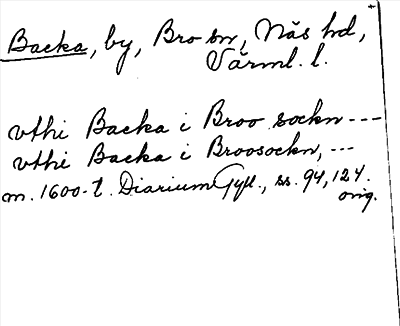 Backa, by, Bro sn, Näs hd,
Värml. l.
vthi Backa i Broo sockn ---
vthi Backa i Broosockn, ---
m. 1600-t. Diarium Gyll., ss. 94, 124.
orig.